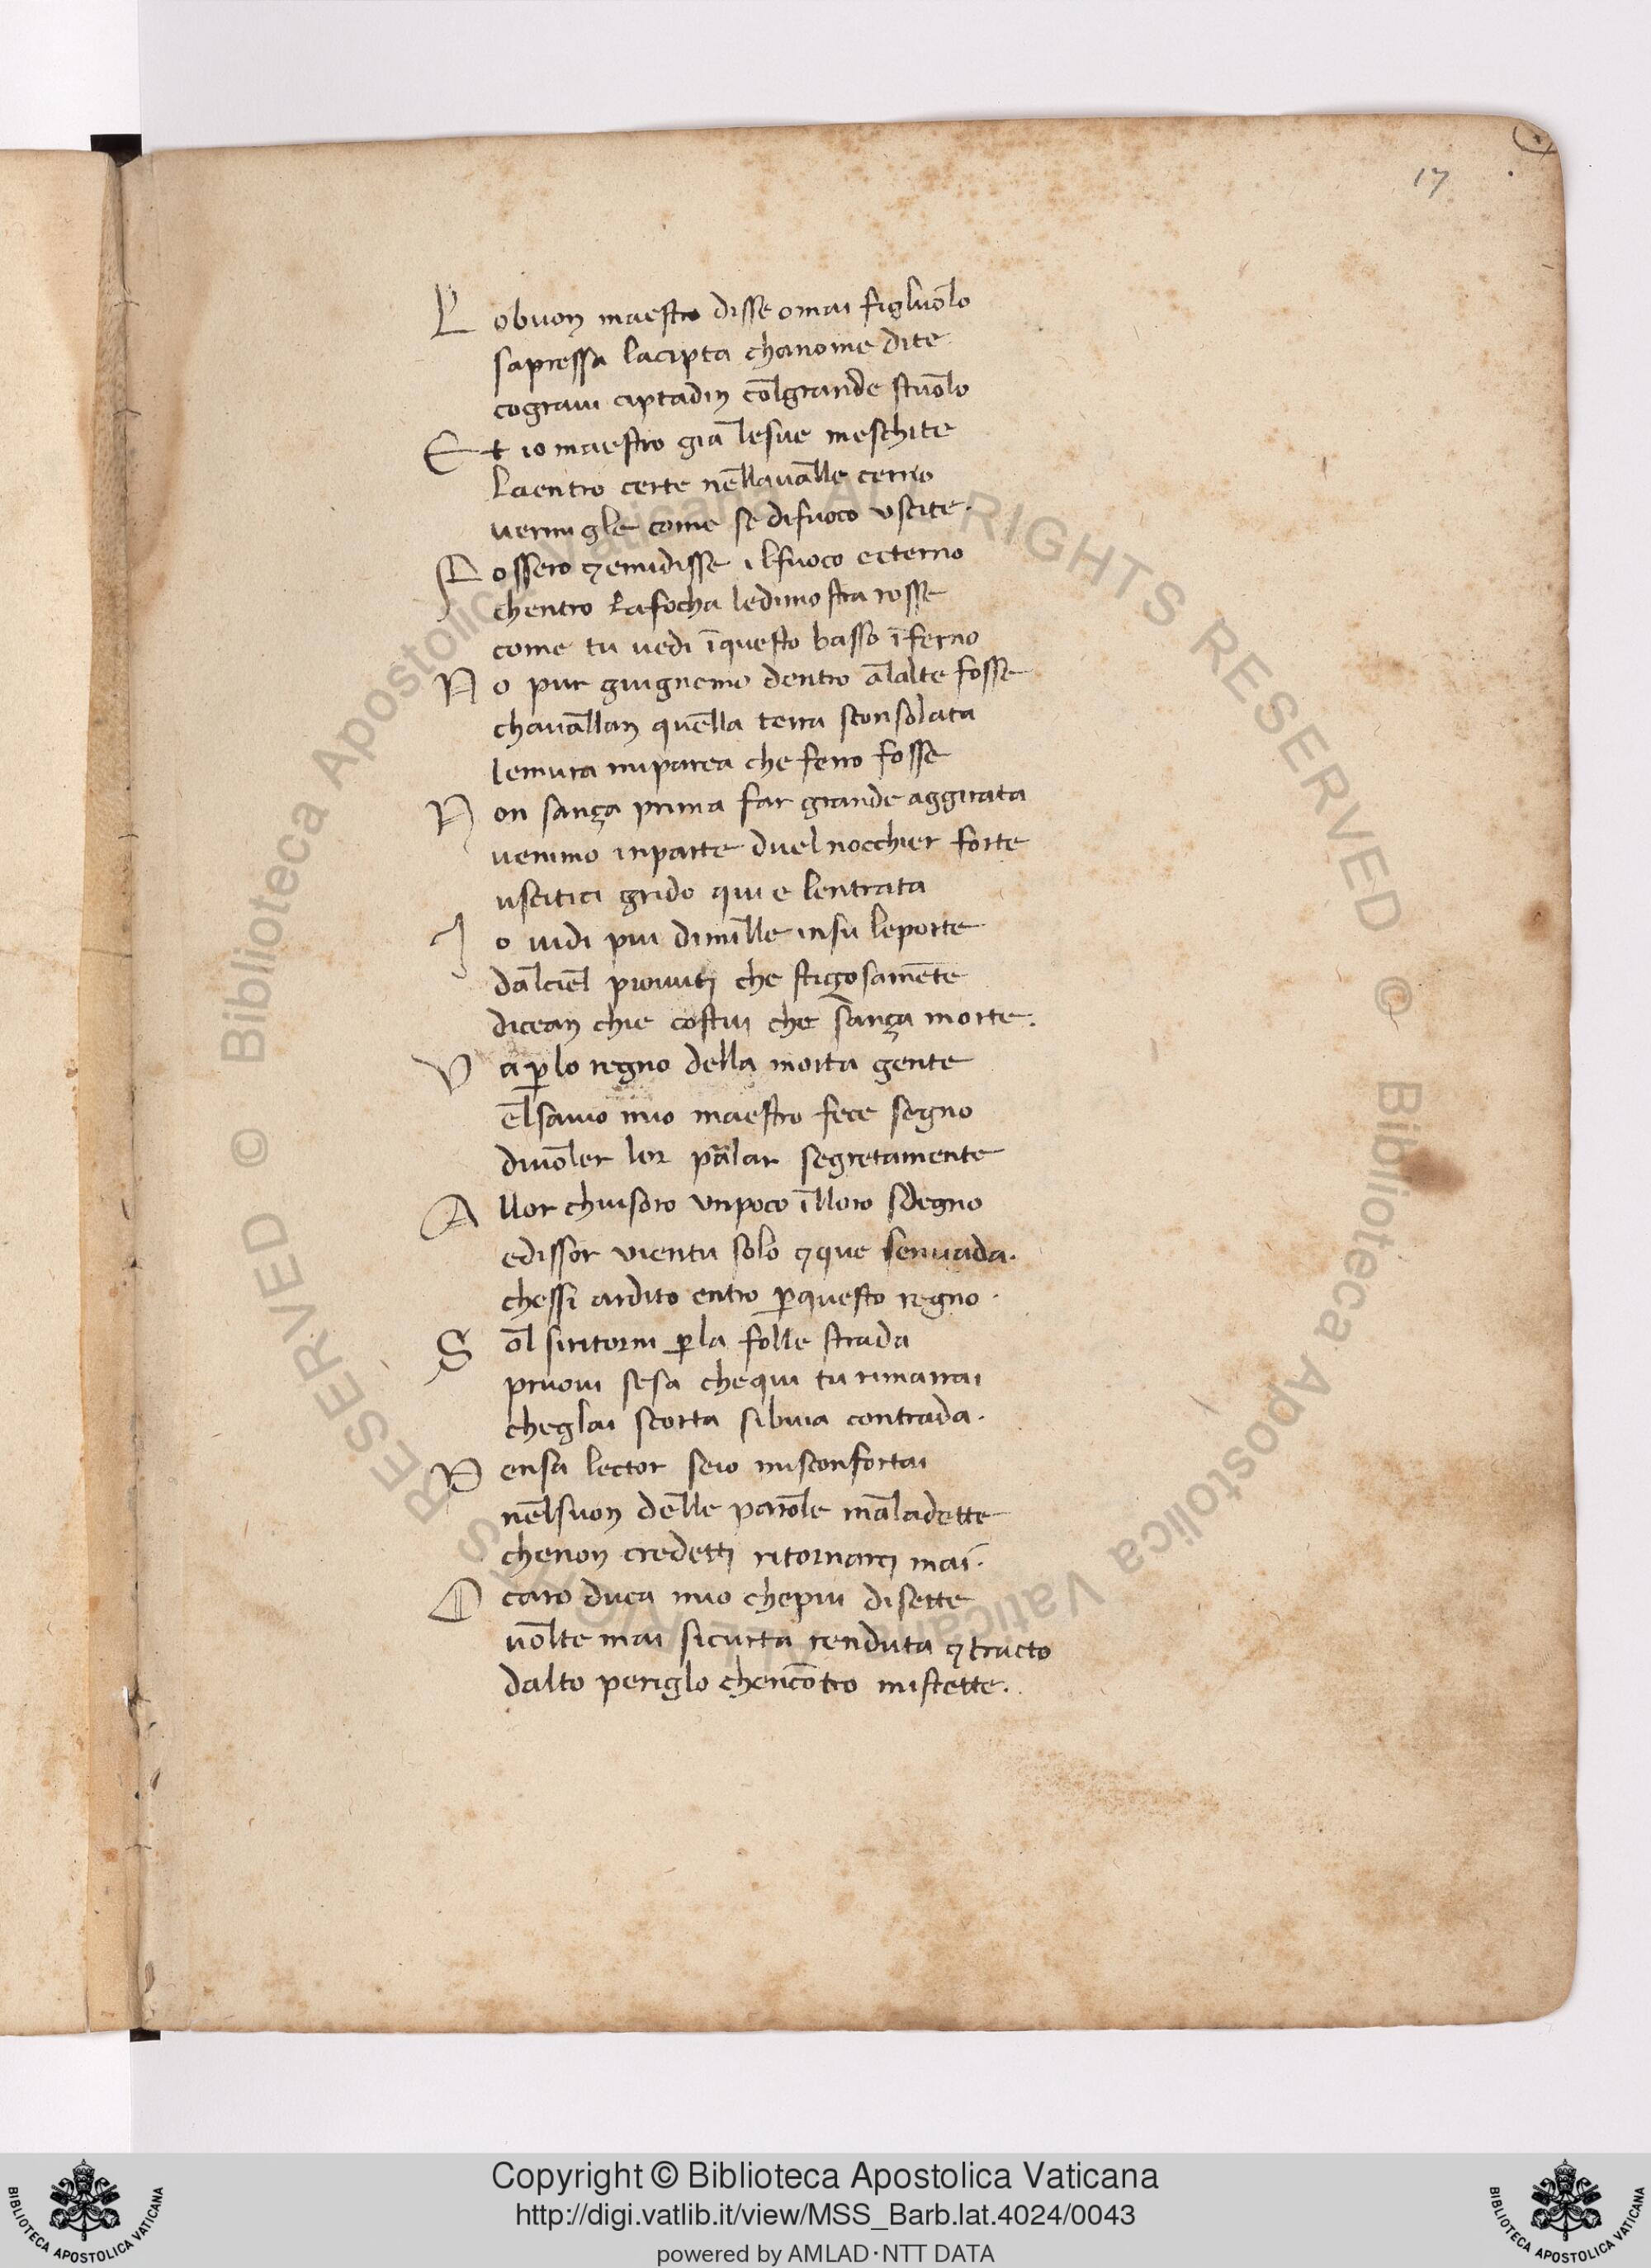 17
L obuon maestro disse omai figluolo
sapressa lacipta chanome dite
cograui ciptadin colgrande stuolo
E t io maestro gia lesue meschite
laentro certe nellaualle cerno
uermigle come se difuoco uscite.
F ossero ⁊ emidisse ilfuoco ecterno
chentro lafocha ledimostra rosse
come tu uedi īquesto basso īferno
N o pur giugnemo dentro alalte fosse
chauallan quella terra sconsolata
lemura miparea che ferro fosse
N on sança prima far grande aggirata
uenimo inparte duel nocchier forte
uscitici grido qui e lentrata
I o uidi piu dimille insu leporte
dalciel piouuti che stigosamente
dicean chie costui che sança morte.
V a ꝑ lo regno della morta gente
elsauio mio maestro fece segno
diuoler lor parlar segretamente
A llor chiusoro unpoco illoro sdegno
edissor uientu solo ⁊ que senuada.
chessi ardito entro ꝑquesto regno.
S ol siritorni ꝑla folle strada
pruoui sesa chequi tu rimarrai
cheglai scorta sibuia contrada.
P ensa lector seio misconfortai
nelsuon delle parole maladette
chenon credetti ritornarci mai.
O caro duca mio chepiu disette
uolte mai sicurta renduta ⁊ tracto
dalto periglo chencōtro mistette.
© Biblioteca Apostolica Vaticana ALL RIGHTS RESERVED © Biblioteca Apostolica Vaticana ALL RIGHTS RESERVED
BIBLIOTECA APOSTOLICA VATICANA
Copyright © Biblioteca Apostolica Vaticana
http://digi.vatlib.it/view/MSS_Barb.lat.4024/0043
powered by AMLAD·NTT DATA
BIBLIOTECA APOSTOLICA VATICANA